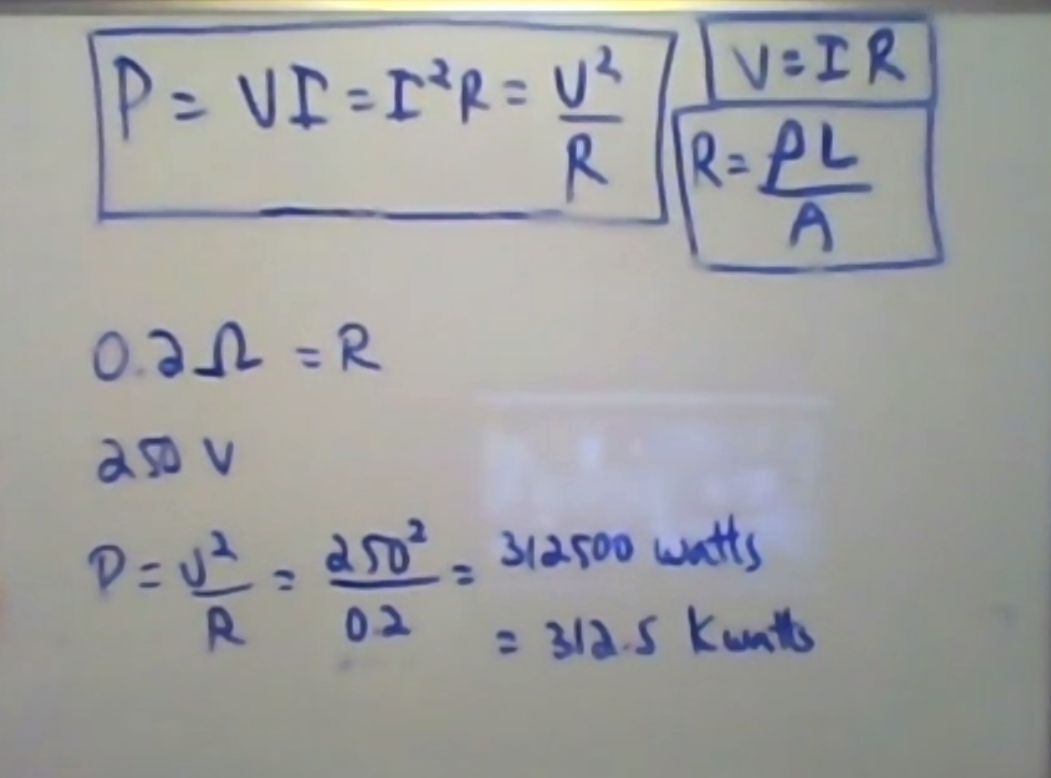 P = VI = I²R = V²/R
V = IR
R = ρL/A
0.2Ω = R
250 V
P = V²/R = 250²/0.2 = 312500 watts
= 312.5 Kwatts